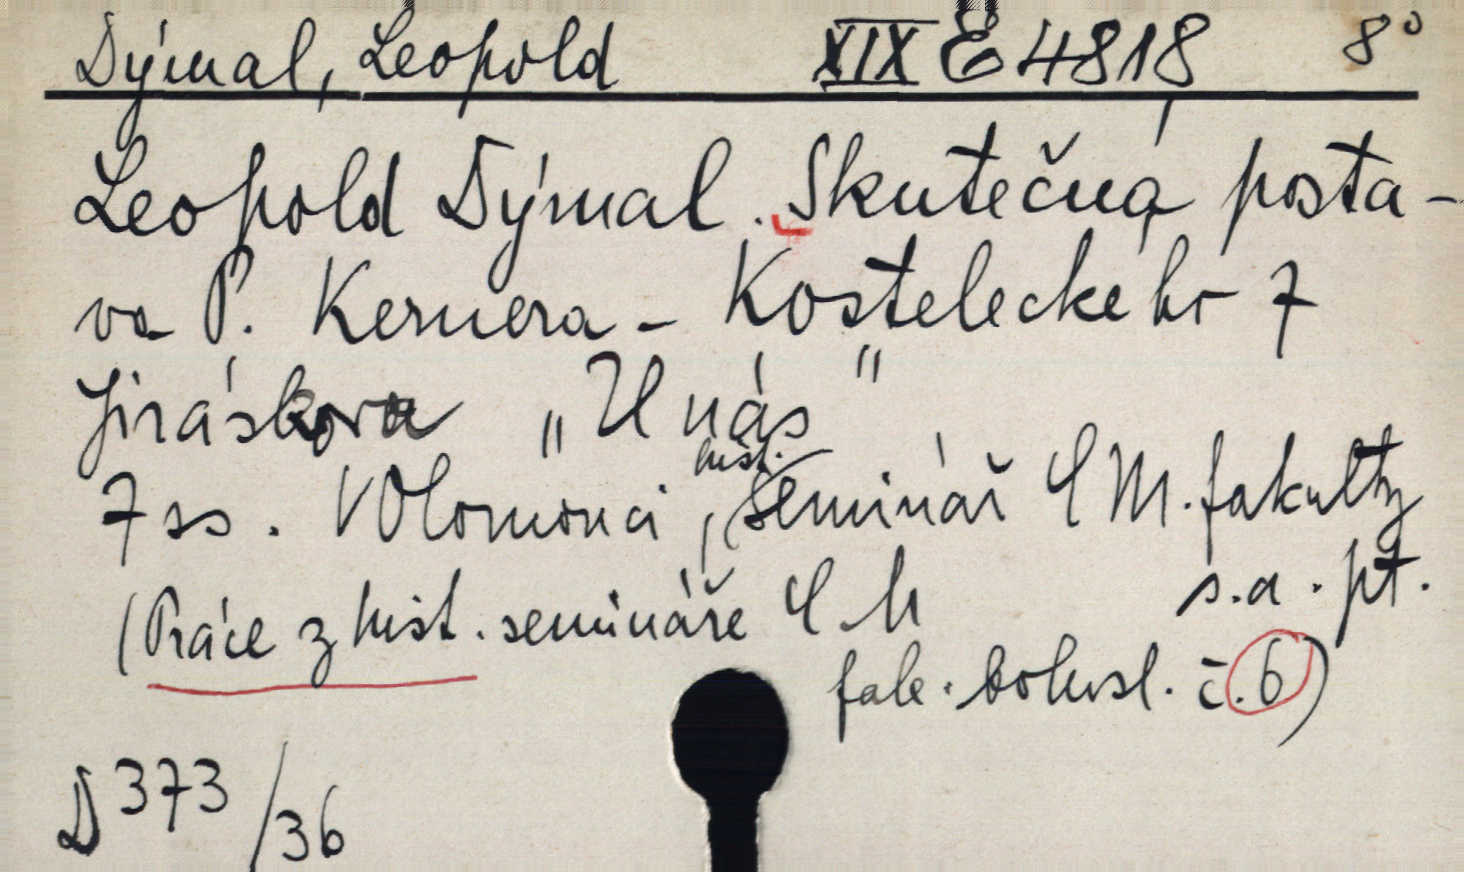 Dýmal, Leopold XIX E 4818 8°
Leopold Dýmal. Skutečná posta-
va P. Kernera - Kosteleckeho z
Jiráskova „U nás"
7 ss. V Olomouci, hist. seminář CM. fakulty
s.a. pt.
(Práce z hist. semináře C M
fak. bohosl. č. 6)
D 373/36